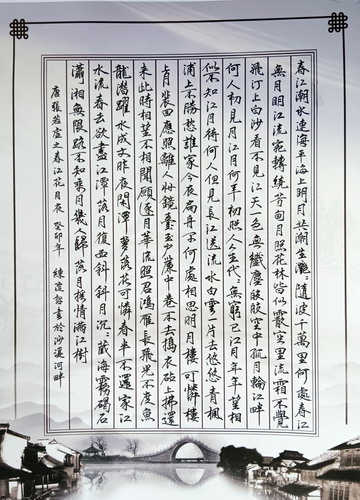 春江潮水連海平海上明月共潮生灩:隨波千萬里何處春江
無月明江流宛轉繞芳甸月照花林皆似霰空里流霜不覺
飛汀上白沙看不見江天一色無纖塵皎皎空中孤月輪江畔
何人初見月江月何年初照人生代:無窮已江月年年望相
似不知江月待何人但見長江送流水白雲一片去悠悠青楓
浦上不勝愁誰家今夜扁舟子何處相思明月樓可憐樓
上月裴回應照離人妝鏡臺玉戶簾中卷不去搗衣砧上拂還
來此時相望不相聞願逐月華流照君鴻雁長飛光不度魚
龍潛躍水成文昨夜閑潭夢落花可憐春半不還家江
水流春去欲盡江潭落月復西斜斜月沉:藏海霧碣石
瀟湘無限路不知乘月幾人歸落月搖情滿江樹
唐張若虛之春江花月夜 癸卯年 練誼 書於沙漠河畔